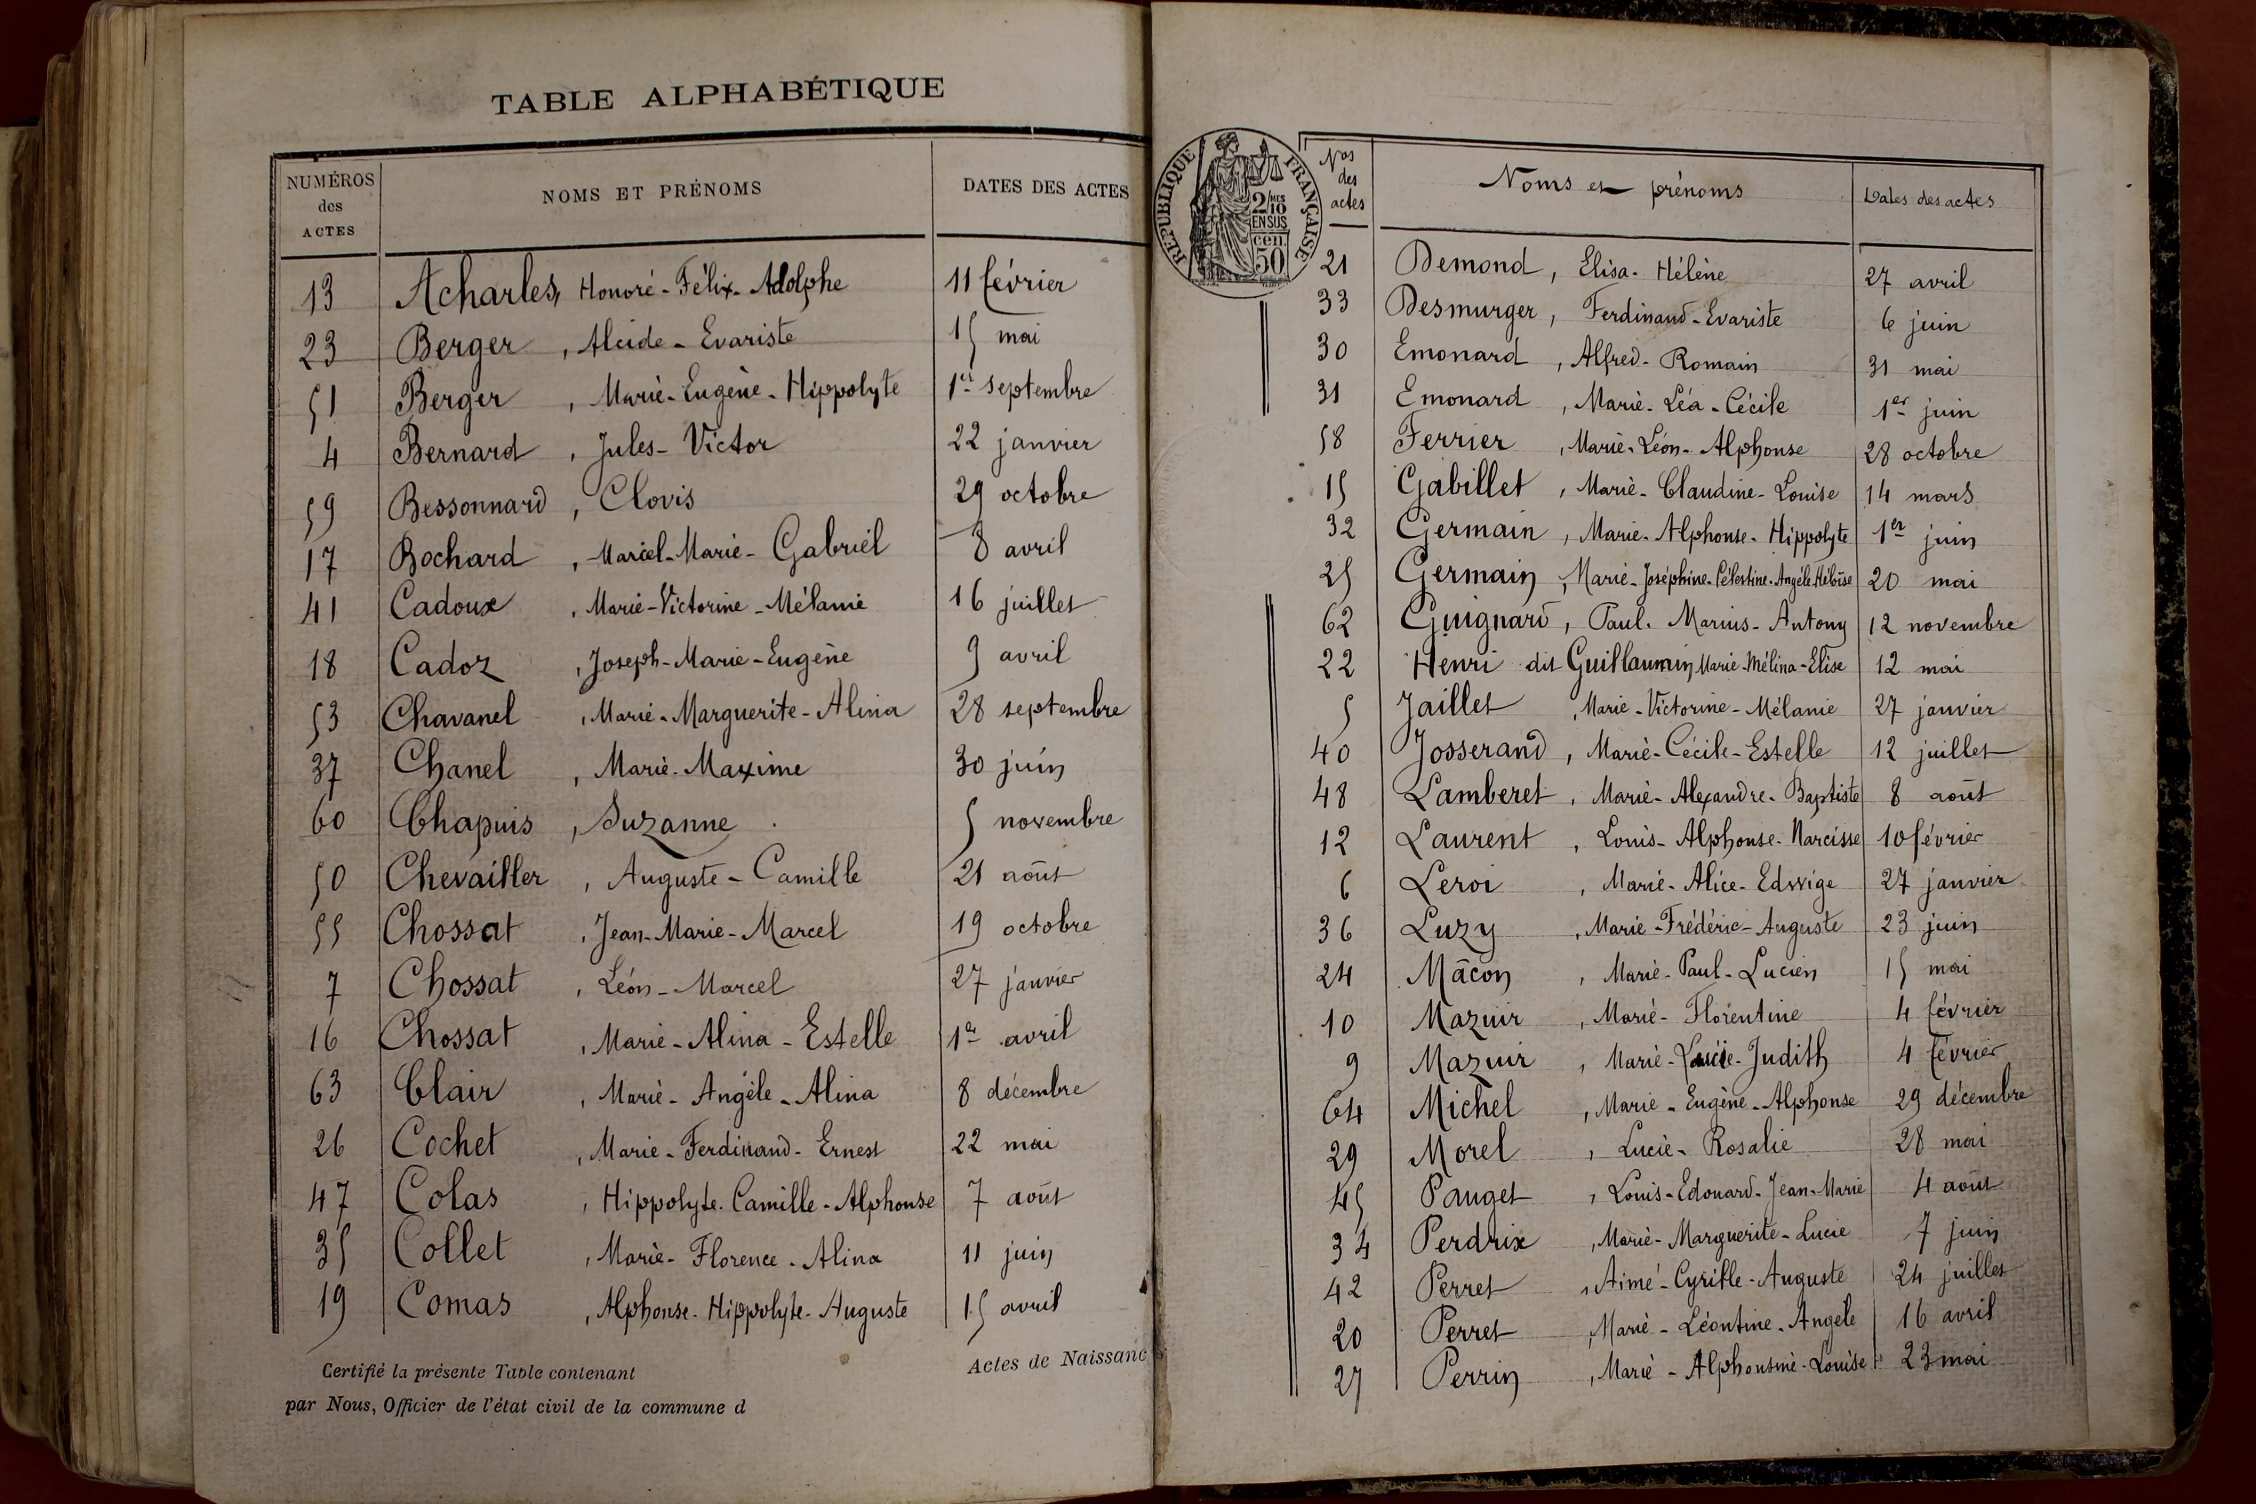 TABLE ALPHABÉTIQUE
NUMÉROS des ACTES NOMS ET PRÉNOMS DATES DES ACTES
13 Acharles, Honoré-Félix-Adolphe 11 février
23 Berger, Alcide-Evariste 15 mai
51 Berger, Marie-Eugène-Hippolyte 1er septembre
4 Bernard, Jules-Victor 22 janvier
59 Bessonnard, Clovis 29 octobre
17 Bochard, Marcel-Marie-Gabriel 8 avril
41 Cadoux, Marie-Victorine-Mélanie 16 juillet
18 Cadoz, Joseph-Marie-Eugène 9 avril
53 Chavanel, Marie-Marguerite-Alina 28 septembre
37 Chanel, Marie-Maxime 30 juin
60 Chapuis, Suzanne 5 novembre
50 Chevailler, Auguste-Camille 21 août
55 Chossat, Jean-Marie-Marcel 19 octobre
7 Chossat, Léon-Marcel 27 janvier
16 Chossat, Marie-Alina-Estelle 1er avril
63 Clair, Marie-Angèle-Alina 8 décembre
26 Cochet, Marie-Ferdinand-Ernest 22 mai
47 Colas, Hippolyte-Camille-Alphonse 7 août
35 Collet, Marie-Florence-Alina 11 juin
19 Comas, Alphonse-Hippolyte-Auguste 15 avril
Certifié la présente Table contenant Actes de Naissanc
par Nous, Officier de l'état civil de la commune d
RÉPUBLIQUE FRANÇAISE
2/10 MES
EN SUS
cen.
50
Nos des actes Noms et prénoms Dates des actes
21 Demond, Elisa-Hélène 27 avril
33 Desmurger, Ferdinand-Evariste 6 juin
30 Emonard, Alfred-Romain 31 mai
31 Emonard, Marie-Léa-Cécile 1er juin
58 Ferrier, Marie-Léon-Alphonse 28 octobre
15 Gabillet, Marie-Claudine-Louise 14 mars
32 Germain, Marie-Alphonse-Hippolyte 1er juin
25 Germain, Marie-Joséphine-Célestine-Angèle-Héloïse 20 mai
62 Guignard, Paul-Marius-Antony 12 novembre
22 Henri dit Guillaumin, Marie-Mélina-Elise 12 mai
5 Jaillet, Marie-Victorine-Mélanie 27 janvier
40 Josserand, Marie-Cécile-Estelle 12 juillet
48 Lamberet, Marie-Alexandre-Baptiste 8 août
12 Laurent, Louis-Alphonse-Narcisse 10 février
6 Leroi, Marie-Alice-Edwige 27 janvier
36 Luzy, Marie-Frédéric-Auguste 23 juin
24 Mâcon, Marie-Paul-Lucien 15 mai
10 Mazuir, Marie-Florentine 4 février
9 Mazuir, Marie-Lucie-Judith 4 février
64 Michel, Marie-Eugène-Alphonse 29 décembre
29 Morel, Lucie-Rosalie 28 mai
45 Pauget, Louis-Edouard-Jean-Marie 4 août
34 Perdrix, Marie-Marguerite-Lucie 7 juin
42 Perret, Aimé-Cyrille-Auguste 24 juillet
20 Perret, Marie-Léontine-Angèle 16 avril
27 Perrin, Marie-Alphonsine-Louise 23 mai